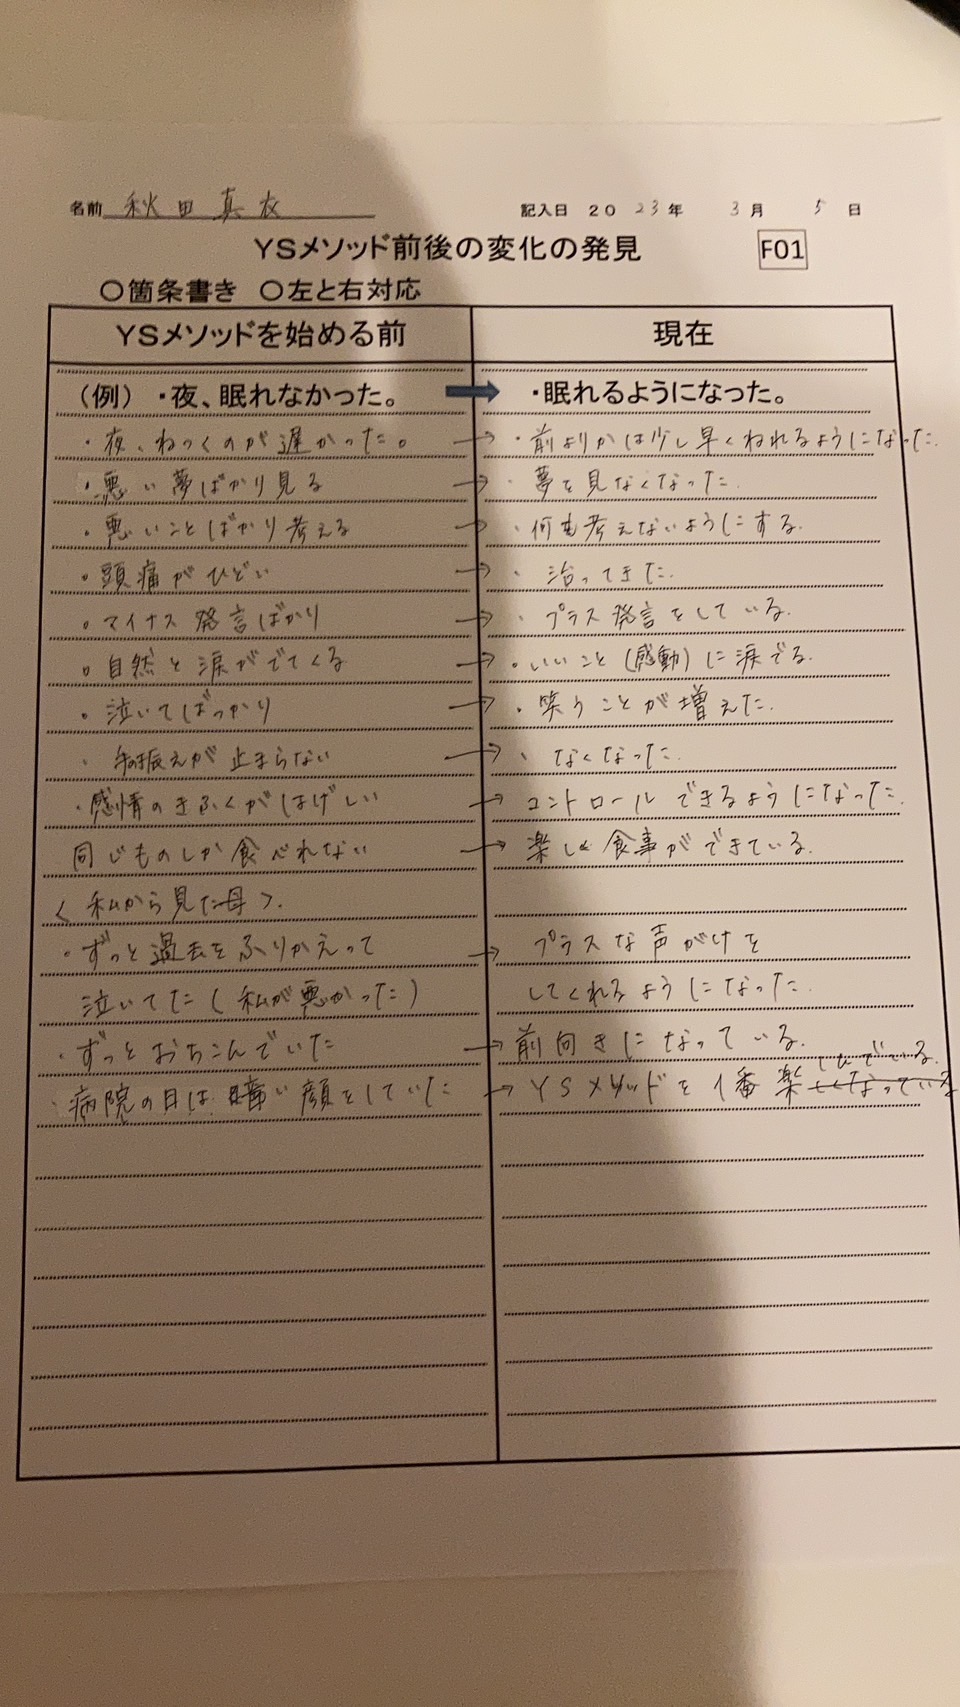 名前 秋田真衣 記入日 2023年 3月 5日
YSメソッド前後の変化の発見 F01
○箇条書き ○左と右対応
YSメソッドを始める前 現在
(例) ・夜、眠れなかった。 → ・眠れるようになった。
・夜、ねつくのが遅かった。 → ・前よりかは少し早くねれるようになった.
・悪い夢ばかり見る → ・夢を見なくなった.
・悪いことばかり考える → ・何も考えないようにする.
・頭痛がひどい → ・治ってきた.
・マイナス発言ばかり → ・プラス発言をしている.
・自然と涙がでてくる → ・いいこと(感動)に涙でる.
・泣いてばっかり → ・笑うことが増えた.
・手の振えが止まらない → ・なくなった.
・感情のきふくがはげしい → コントロールできるようになった.
同じものしか食べれない → 楽しく食事ができている.
<私から見た母>.
・ずっと過去をふりかえって → プラスな声がけを
泣いてた(私が悪かった) してくれるようになった.
・ずっとおちこんでいた → 前向きになっている.
・病院の日は暗い顔をしていた → YSメソッドを1番楽しんでいる.